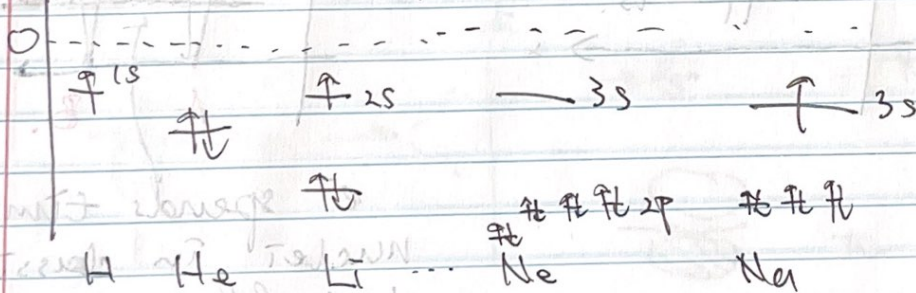 0
1s
2s 3s 3s
2p
H He Li ... Ne Na